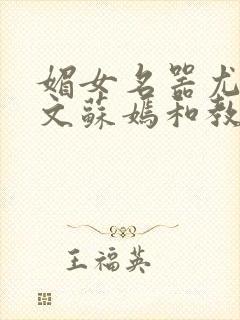 媚女名器尤
文蘇媽和教
王福英